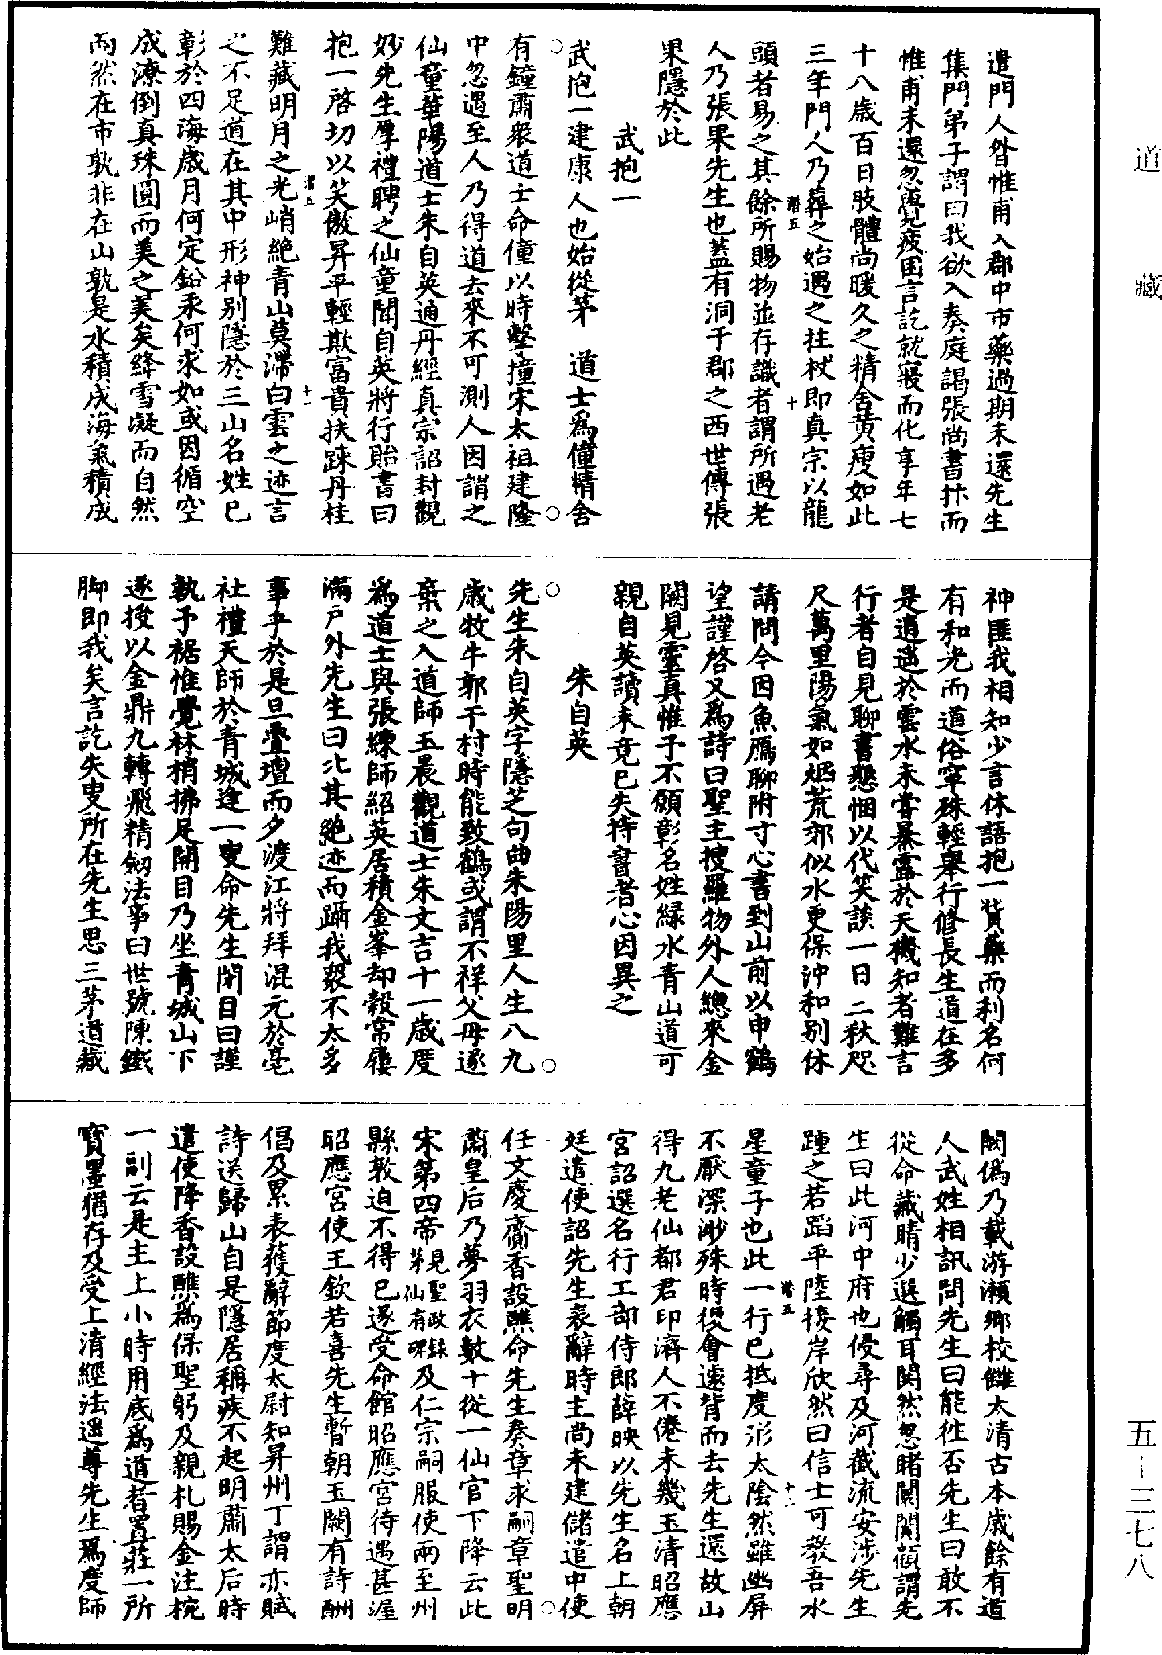 遺門人昝惟甫入郡中市藥過期未還先生
集門弟子謂曰我欲入奏庭謁張尚書拤而
惟甫未還忽覺疲困言訖就寢而化享年七
十八歲百日肢體尚暖久之精舍黃瘦如此
三年門人乃葬之始遇之拄杖即真宗以龍
頭者易之其餘所賜物並存識者謂所遇老
人乃張果先生也蓋有洞于郡之西世傳張
果隱於此
武抱一
武抱一建康人也始從茅 道士為僮精舍
有鐘肅衆道士命僮以時擊撞宋太祖建隆
中忽遇至人乃得道去來不可測人因誚之
仙童華陽道士朱自英通丹經真宗詔封觀
妙先生厚禮聘之仙童聞自英將行貽書曰
抱一啓切以笑傲昇平輕欺富貴扶踈丹桂
難藏明月之光峭絶青山莫滯白雲之迹言
之不足道在其中形神别隱於三山名姓已
彰於四海歲月何定鉛汞何求如或因循空
成潦倒真珠圓而美之美矣絳雪凝而自然
而然在市孰非在山孰是水積成海氣積成
神匪我相知少言休語抱一貨藥而利名何
有和光而道俗寧殊輕舉行修長生道在多
是逍遥於雲水未嘗暴露於天機知者難言
行者自見聊書懇悃以代笑談一日二秋咫
尺萬里陽氣如烟荒郊似水更保沖和别休
請問今因魚鴈聊附寸心書到山前以申鶴
望謹啓又為詩曰聖主搜羅物外人總來金
闕見靈真惟予不願彰名姓緑水青山道可
親自英讀未竟已失持書者心因異之
朱自英
先生朱自英字隱芝句曲朱陽里人生八九
歲牧牛郭干村時能致鶴或謂不祥父母逐
棄之入道師玉晨觀道士朱文吉十一歲度
為道士與張練師紹英居積金峯却穀常屨
滿戶外先生曰北其絶迹而躡我衮不太多
事乎於是旦疊壇而夕渡江將拜混元於亳
社禮天師於青城逢一叟命先生閉目曰謹
執予裾惟覺林梢拂足開目乃坐青城山下
遂授以金鼎九轉飛精劔法事曰世號陳鐵
脚即我矣言訖失叟所在先生思三茅道藏
闕僞乃載游瀨鄉校讎太清古本歲餘有道
人武姓相訊問先生曰能徃否先生曰敢不
從命藏睛少選觸耳関然忽睹闤闠顧謂先
生曰此河中府也侵尋及河截流安涉先生
踵之若蹈平陸棲岸欣然曰信士可教吾水
星童子也此一行已抵度形太陰然雖幽屏
不厭深渺殊時復會遽背而去先生還故山
得九老仙都君印濟人不倦未幾玉清昭應
宮詔選名行工部侍郎薛映以先生名上朝
廷遣使詔先生表辭時主尚未建儲遣中使
任文慶齋香設醮命先生奏章求嗣章聖明
肅皇后乃夢羽衣數十從一仙官下降云此
宋第四帝見聖政録茅仙有碑及仁宗嗣服使兩至州
縣敦迫不得已遂受命館昭應宮待遇甚渥
昭應宮使王欽若喜先生暫朝玉闕有詩酬
倡及累表獲辭節度太尉知昇州丁謂亦賦
詩送歸山自是隱居稱疾不起明肅太后時
遣使降香設醮為保聖躬及親札賜金注椀
一副云是主上小時用底為道者置莊一所
寶墨猶存及受上清經法遥尊先生為度師
道藏
五—三七八
潛五
十
潛五
十一
潛五
十二